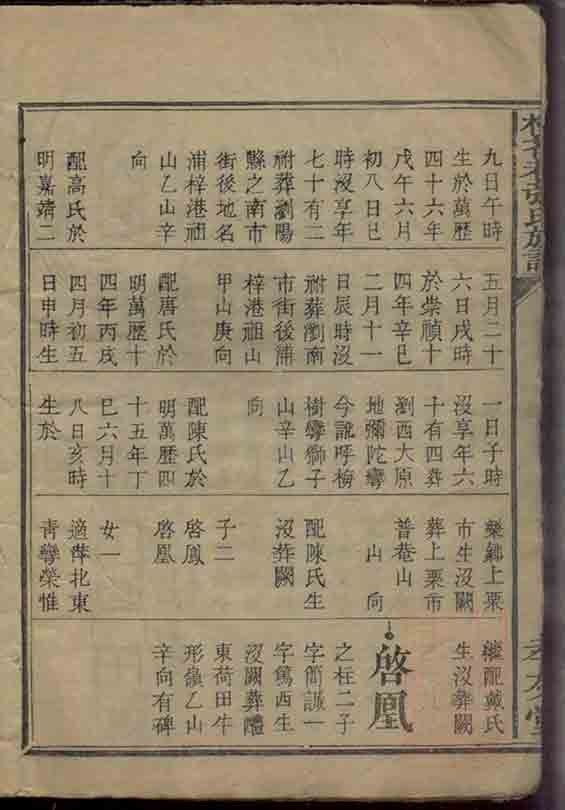 九日午時
生於萬歷
四十六年
戊午六月
初八日巳
時沒享年
七十有二
祔葬瀏陽
縣之南市
街後地名
浦梓港祖
山乙山辛
向
配高氏於
明嘉靖二
五月二十
六日戌時
於崇禎十
四年辛巳
二月十一
日辰時沒
祔葬瀏南
市街後浦
梓港祖山
甲山庚向
配唐氏於
明萬歷十
四年丙戌
四月初五
日申時生
一日子時
沒享年六
十有四葬
瀏西大原
地彌陀彎
今訛呼梅
樹彎獅子
山辛山乙
向
配陳氏於
明萬歷四
十五年丁
巳六月十
八日亥時
生於
樂鄉上栗
市生沒闕
葬上栗市
普菴山
山向
配陳氏生
沒葬闕
子二
啓鳳
啓凰
女一
適萍北東
青彎榮惟
繼配戴氏
生沒葬闕
啓凰
之柱二子
字簡謙一
字篤西生
沒闕葬醴
東荷田牛
形龜乙山
辛向有碑